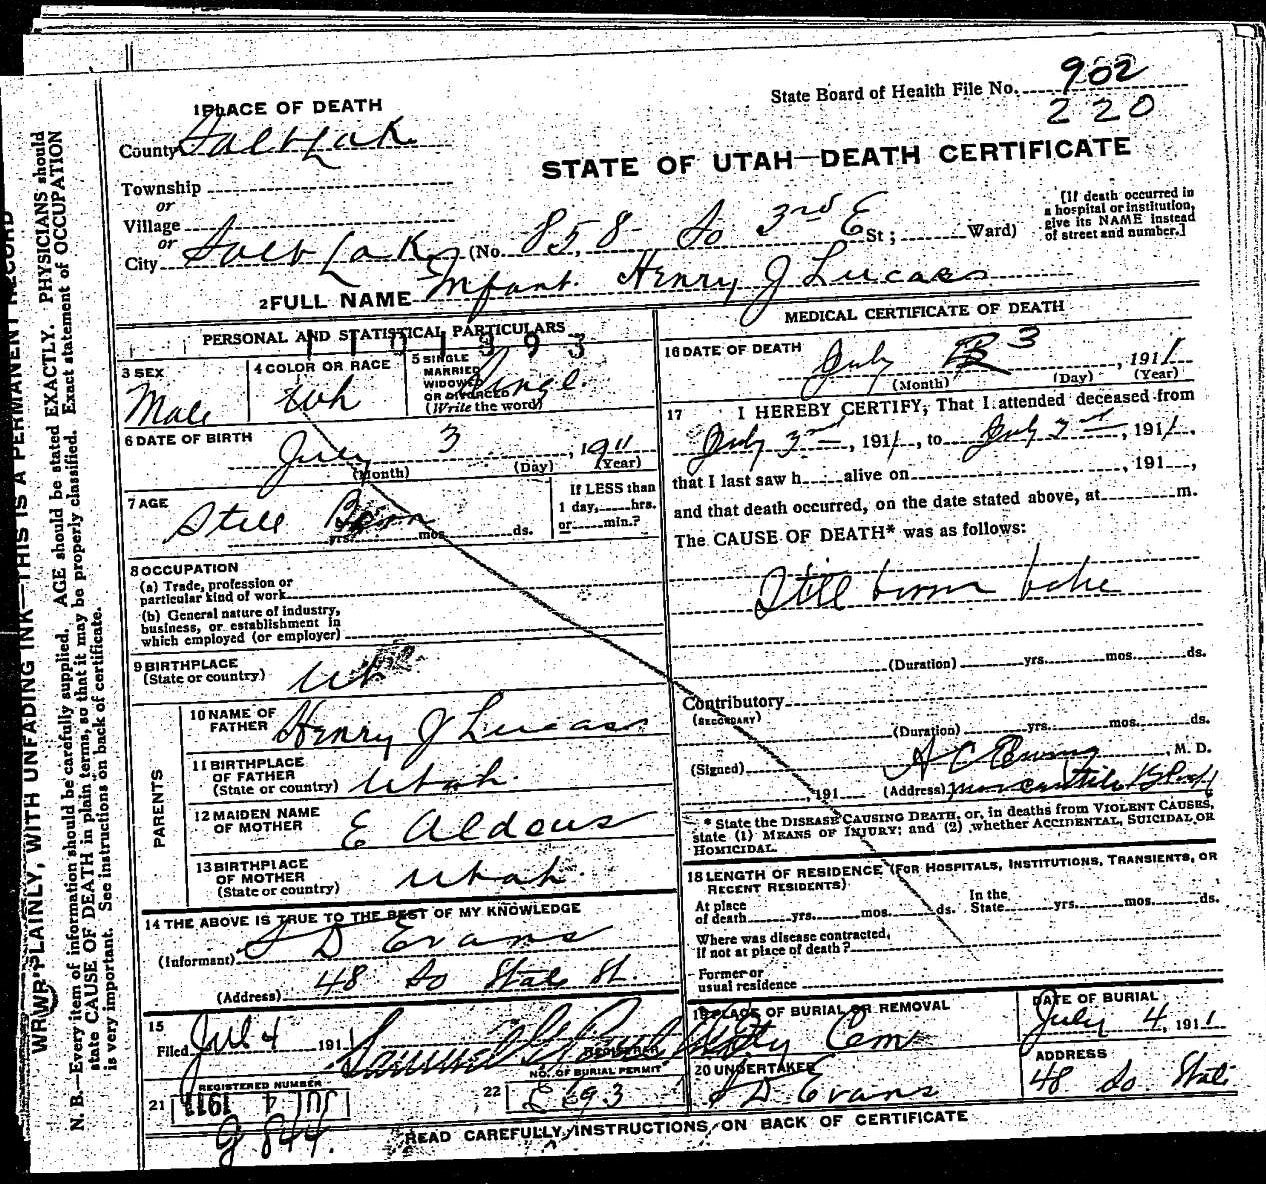 State Board of Health File No. 902
220
1 PLACE OF DEATH
County Salt Lake
STATE OF UTAH—DEATH CERTIFICATE
Township
or
Village
or
City Salt Lake (No. 858 So 3rd E St; Ward)
(If death occurred in
a hospital or institution,
give its NAME instead
of street and number.]
2 FULL NAME Infant. Henry J Lucas
PERSONAL AND STATISTICAL PARTICULARS
1101393
3 SEX
Male
4 COLOR OR RACE
Wh
5 SINGLE
MARRIED
WIDOWED
OR DIVORCED
(Write the word)
Single
6 DATE OF BIRTH
July 3, 1911
(Month) (Day) (Year)
7 AGE
Still Born
yrs. mos. ds.
If LESS than
1 day, hrs.
or min.?
8 OCCUPATION
(a) Trade, profession or
particular kind of work
(b) General nature of industry,
business, or establishment in
which employed (or employer)
9 BIRTHPLACE
(State or country)
Ut
PARENTS
10 NAME OF
FATHER
Henry J Lucas
11 BIRTHPLACE
OF FATHER
(State or country)
Utah.
12 MAIDEN NAME
OF MOTHER
E Aldous
13 BIRTHPLACE
OF MOTHER
(State or country)
Utah.
14 THE ABOVE IS TRUE TO THE BEST OF MY KNOWLEDGE
(Informant) S D Evans
(Address) 48 So State St.
15
Filed Jul 4 191
REGISTRAR
21 REGISTERED NUMBER
JUL 4 1911
g 844.
22 NO. OF BURIAL PERMIT
E 693
MEDICAL CERTIFICATE OF DEATH
16 DATE OF DEATH
July 3, 1911
(Month) (Day) (Year)
17 I HEREBY CERTIFY, That I attended deceased from
July 3rd, 1911, to July 3rd, 1911,
that I last saw h alive on , 191 ,
and that death occurred, on the date stated above, at m.
The CAUSE OF DEATH* was as follows:
Still born babe
(Duration) yrs. mos. ds.
Contributory
(SECONDARY)
(Duration) yrs. mos. ds.
(Signed) A C Ewing, M. D.
, 191 (Address) Mercantile Block
* State the DISEASE CAUSING DEATH, or, in deaths from VIOLENT CAUSES,
state (1) MEANS OF INJURY; and (2) whether ACCIDENTAL, SUICIDAL OR
HOMICIDAL.
18 LENGTH OF RESIDENCE (FOR HOSPITALS, INSTITUTIONS, TRANSIENTS, OR
RECENT RESIDENTS)
At place
of death yrs. mos. ds.
In the
State yrs. mos. ds.
Where was disease contracted,
if not at place of death?
Former or
usual residence
19 PLACE OF BURIAL OR REMOVAL
City Cem
DATE OF BURIAL
July 4, 1911
20 UNDERTAKER
S D Evans
ADDRESS
48 So State
READ CAREFULLY INSTRUCTIONS ON BACK OF CERTIFICATE
WRITE PLAINLY, WITH UNFADING INK—THIS IS A PERMANENT RECORD
N. B.—Every item of information should be carefully supplied. AGE should be stated EXACTLY. PHYSICIANS should
state CAUSE OF DEATH in plain terms, so that it may be properly classified. Exact statement of OCCUPATION
is very important. See instructions on back of certificate.